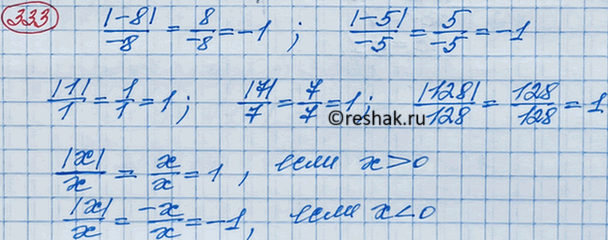 333 |-8|/-8 = 8/-8 = -1 ; |-5|/-5 = 5/-5 = -1
|1|/1 = 1/1 = 1 ; |7|/7 = 7/7 = 1 ; |128|/128 = 128/128 = 1
©reshak.ru
|x|/x = x/x = 1 , если x > 0
|x|/x = -x/x = -1 , если x < 0